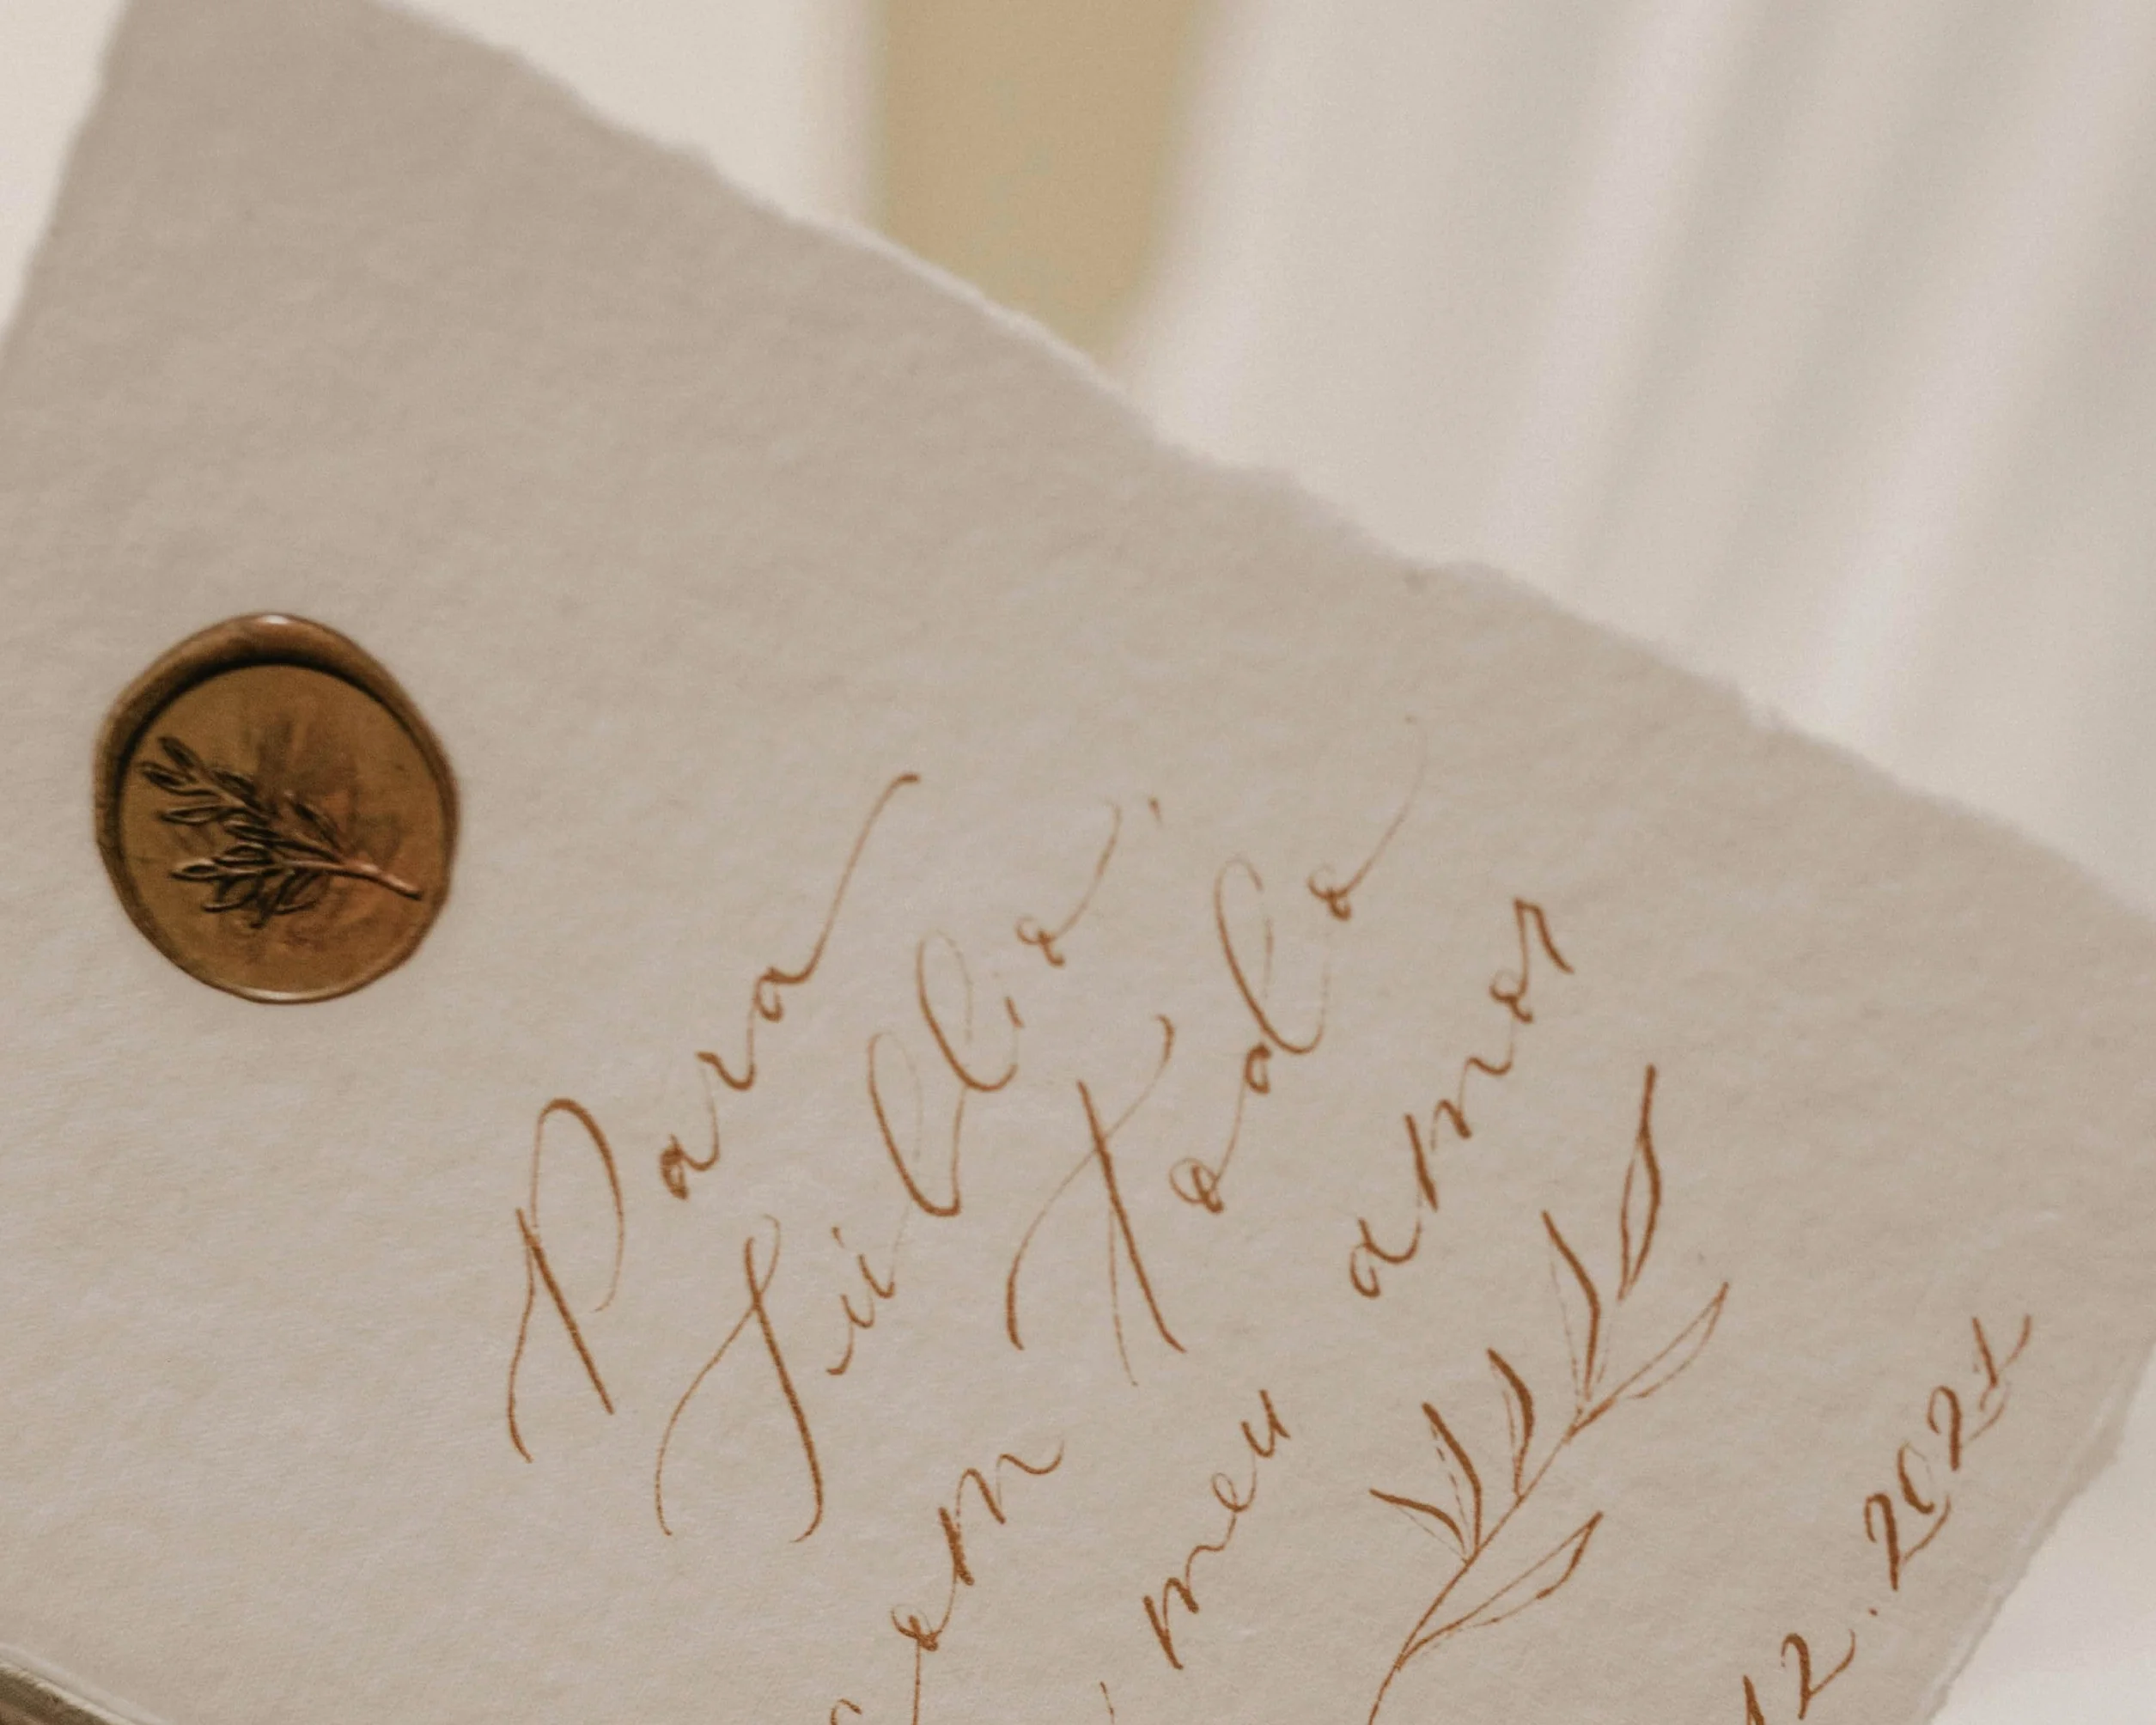 Para
Lillia
com todo
meu amor
12.2021